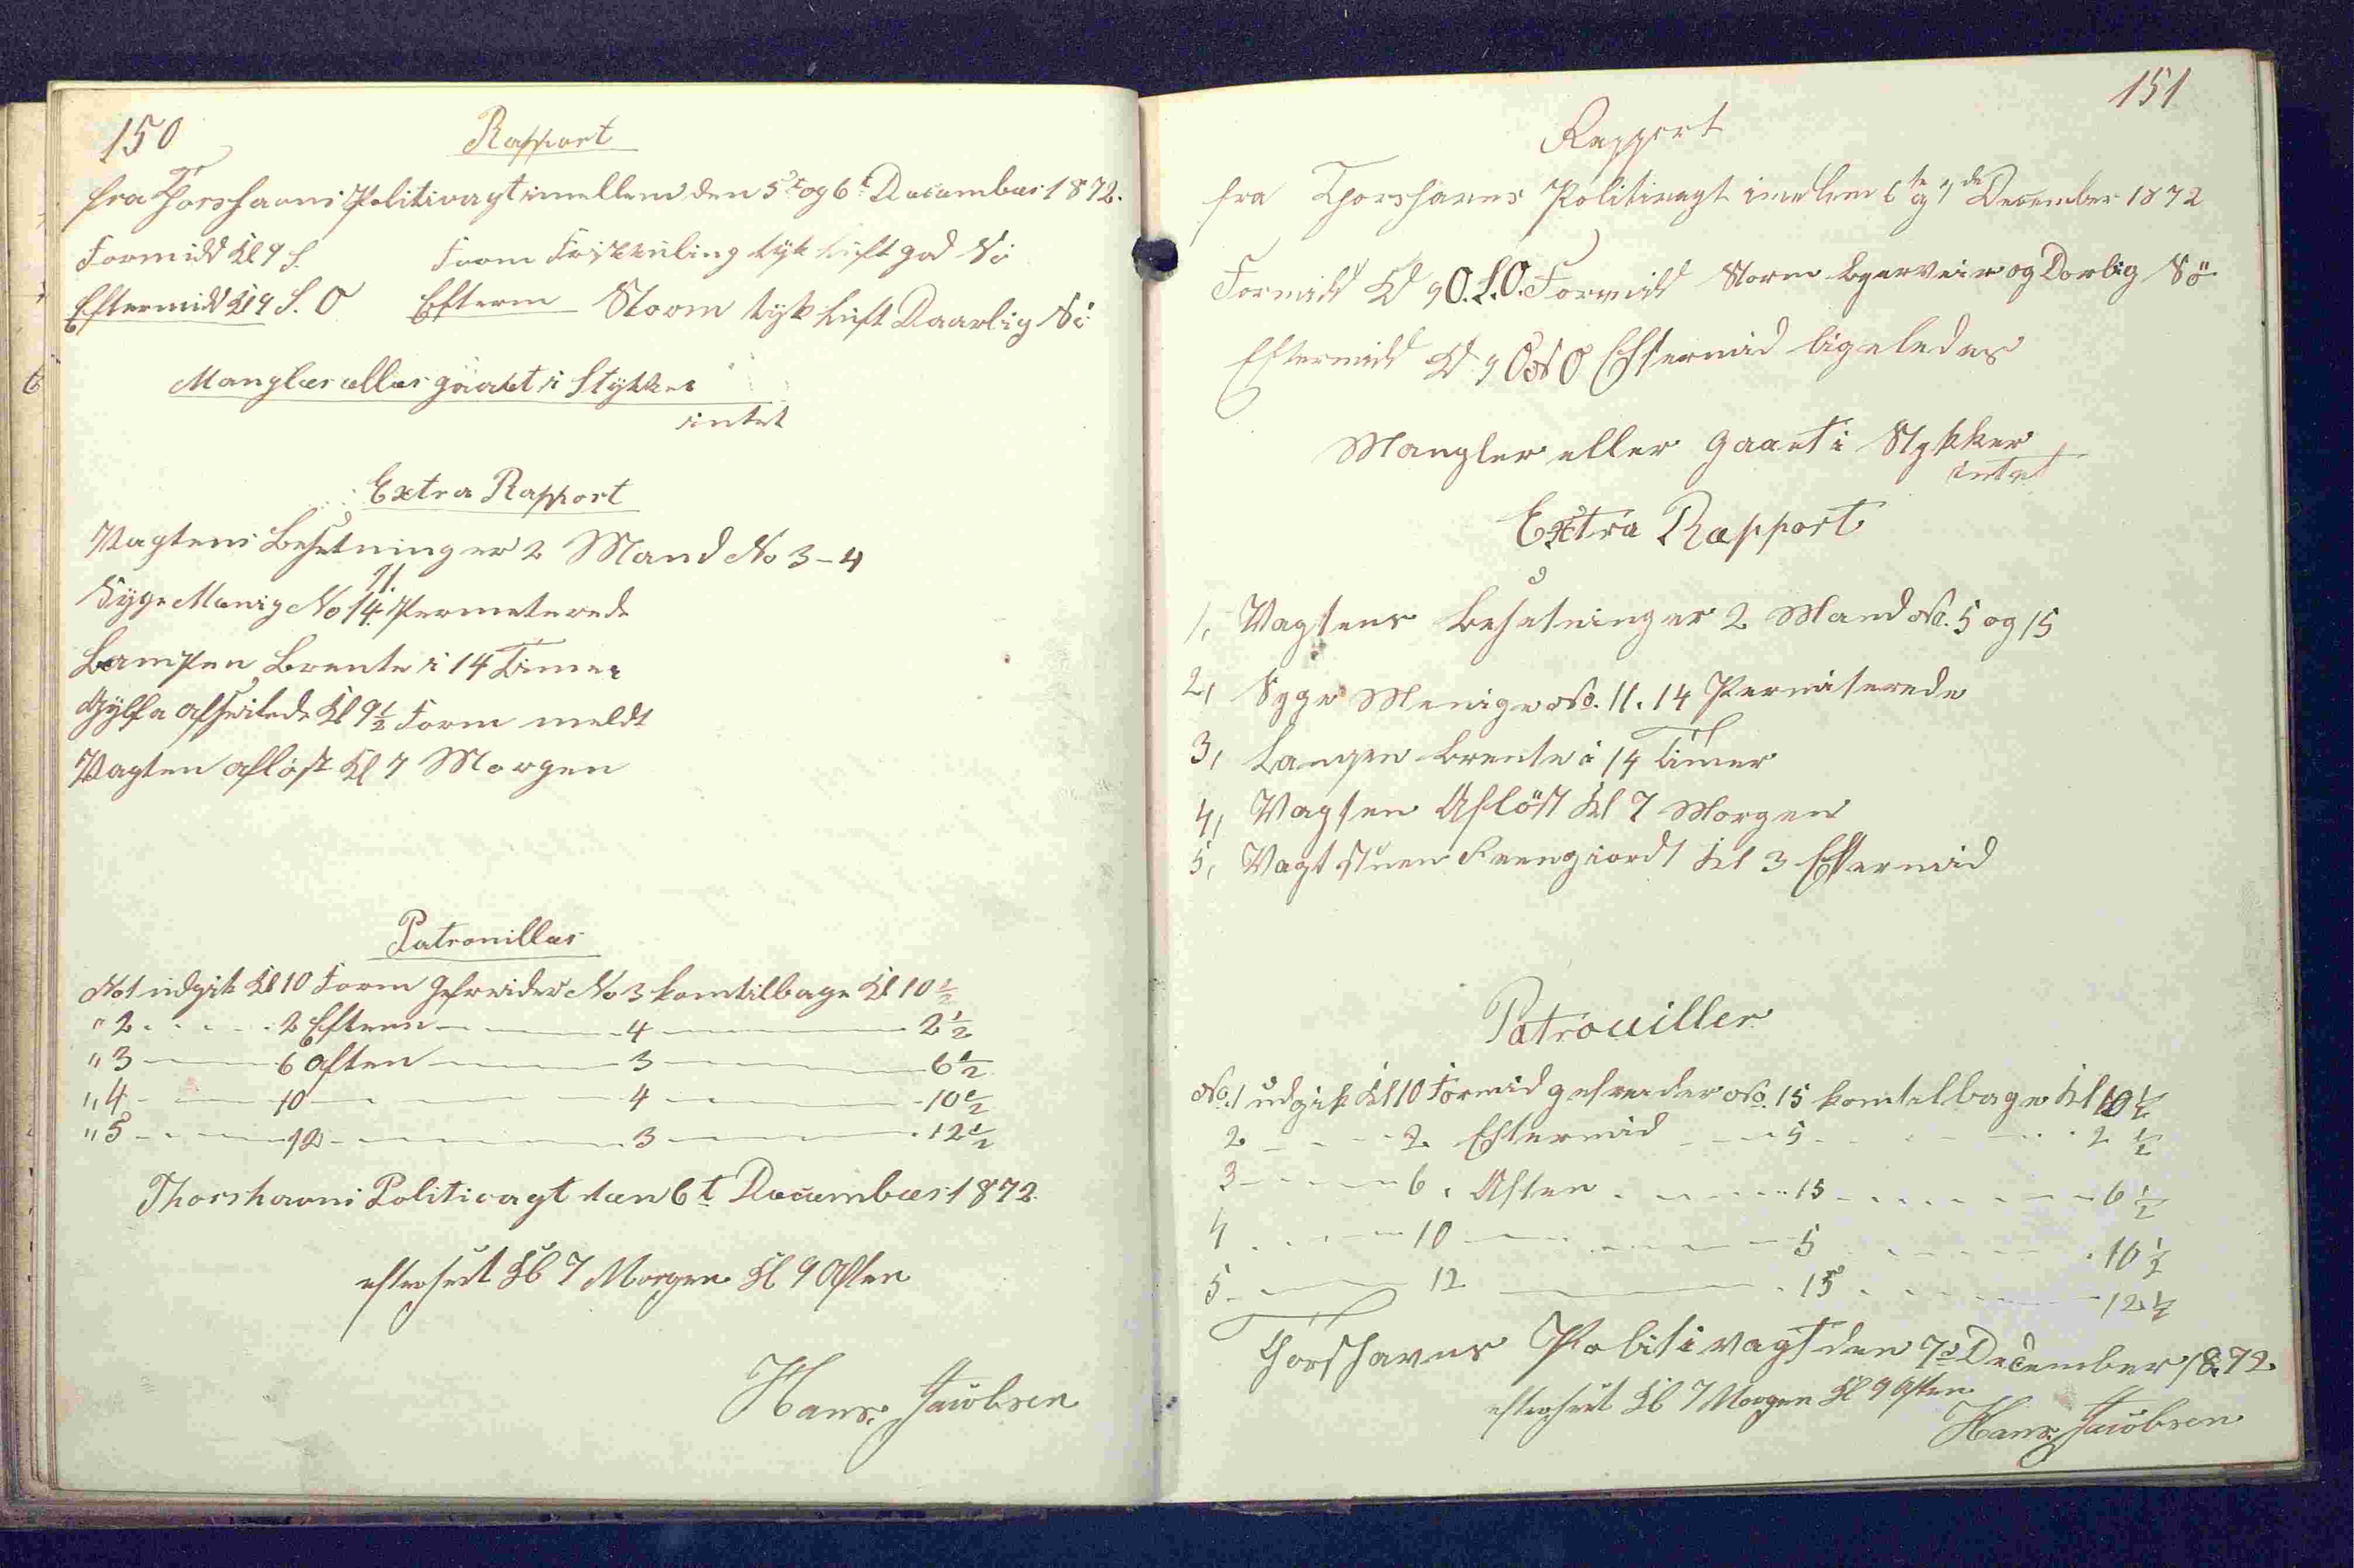 150
Rapport
fra Thorshavns Politivagt imellem den 5t og 6t December 1872.
Formidd Kl 9 S. Form Friskkuling tyk Luft god Sö
Eftermidd Kl 9 S. O Efterm Storm tyk Luft Daarlig Sö
Mangler eller gaaet i Stykker
intet
Extra Rapport
Vagtens Besetning er 2 Mand No 3-4
Syge Menig No 14 11. Permeterede
Lampen Brente i 14 Timer
Gylfe afseilede Kl 9½ Form meldt
Vagten aflöst Kl 7 Morgen
Patrouiller
No 1 udgik Kl 10 Form Gefreider No 3 kom tilbage Kl 10½
" 2 - - - - 2 Efterm - - - 4 - - - 2½
" 3 - - - 6 Aften - - - 3 - - - 6½
" 4 - - - 10 - - - 4 - - - 10½
" 5 - - - 12 - - - 3 - - - 12½
Thorshavns Politivagt den 6t December 1872.
efterseet Kl 7 Morgen Kl 9 Aften
Hans Jacobsen
151
Rapport
fra Thorshavns Politivagt imelem 6te og 7de December 1872
Formidd Kl 9 O.S.O. Formidd Storm Bgerveir og Dorlig Sö
Eftermidd Kl 9 Ost O Eftermid ligeledes
Mangler eller gaaet i Stykker
intet
Extra Rapport
1, Vagtens Besetning er 2 Mand No. 5 og 15
2, Syge Menige No. 11. 14 Permiterede
3, Lampen Brente i 14 Timer
4, Vagten Aflöst Kl 7 Morgen
5, Vagtstuen Reengiordt Kl 3 Eftermid
Patrouiller
No. 1 udgik Kl 10 Formid gefreider No. 15 kom tilbage Kl 10½
2 - - - 2 Eftermid - - - 5 - - - 2½
3 - - - 6. Aften - - - 15 - - - 6½
4 - - - 10 - - - 5 - - - 10½
5 - - - 12 - - - 15 - - - 12½
Thorshavns Politivagt den 7d December 1872.
efterseet Kl 7 Morgen Kl 9 Aften
Hans Jacobsen